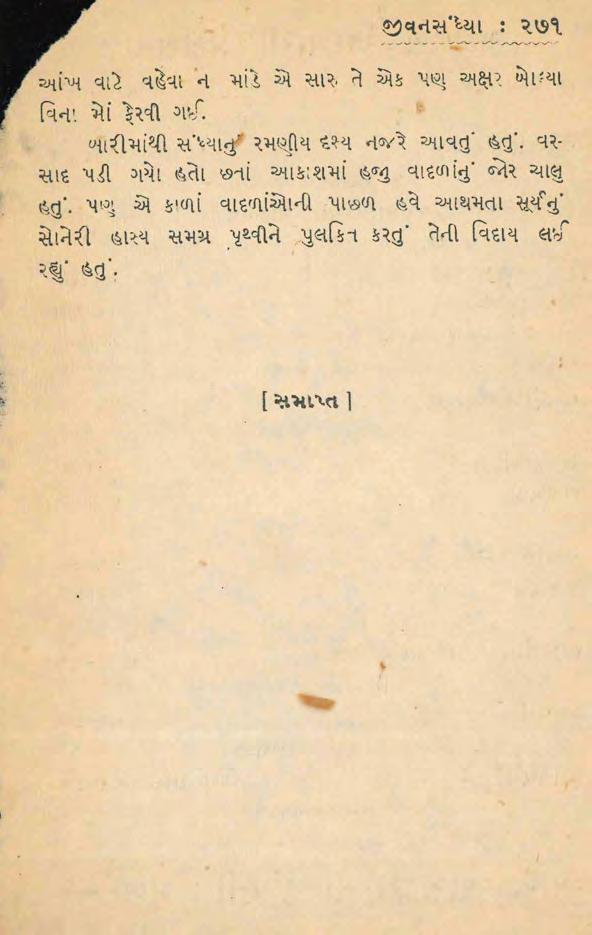 જીવનસંધ્યા : ૨૭૧
આંખ વાટે વહેવા ન માંડે એ સારુ તે એક પણ અક્ષર બોલ્યા
વિના મોં ફેરવી ગઈ.
બારીમાંથી સંધ્યાનું રમણીય દૃશ્ય નજરે આવતું હતું. વર-
સાદ પડી ગયો હતો છતાં આકાશમાં હજુ વાદળાંનું જોર ચાલુ
હતું. પણ એ કાળાં વાદળાંઓની પાછળ હવે આથમતા સૂર્યનું
સોનેરી હાસ્ય સમગ્ર પૃથ્વીને પુલકિત કરતું તેની વિદાય લઈ
રહ્યું હતું.
[ સમાપ્ત ]